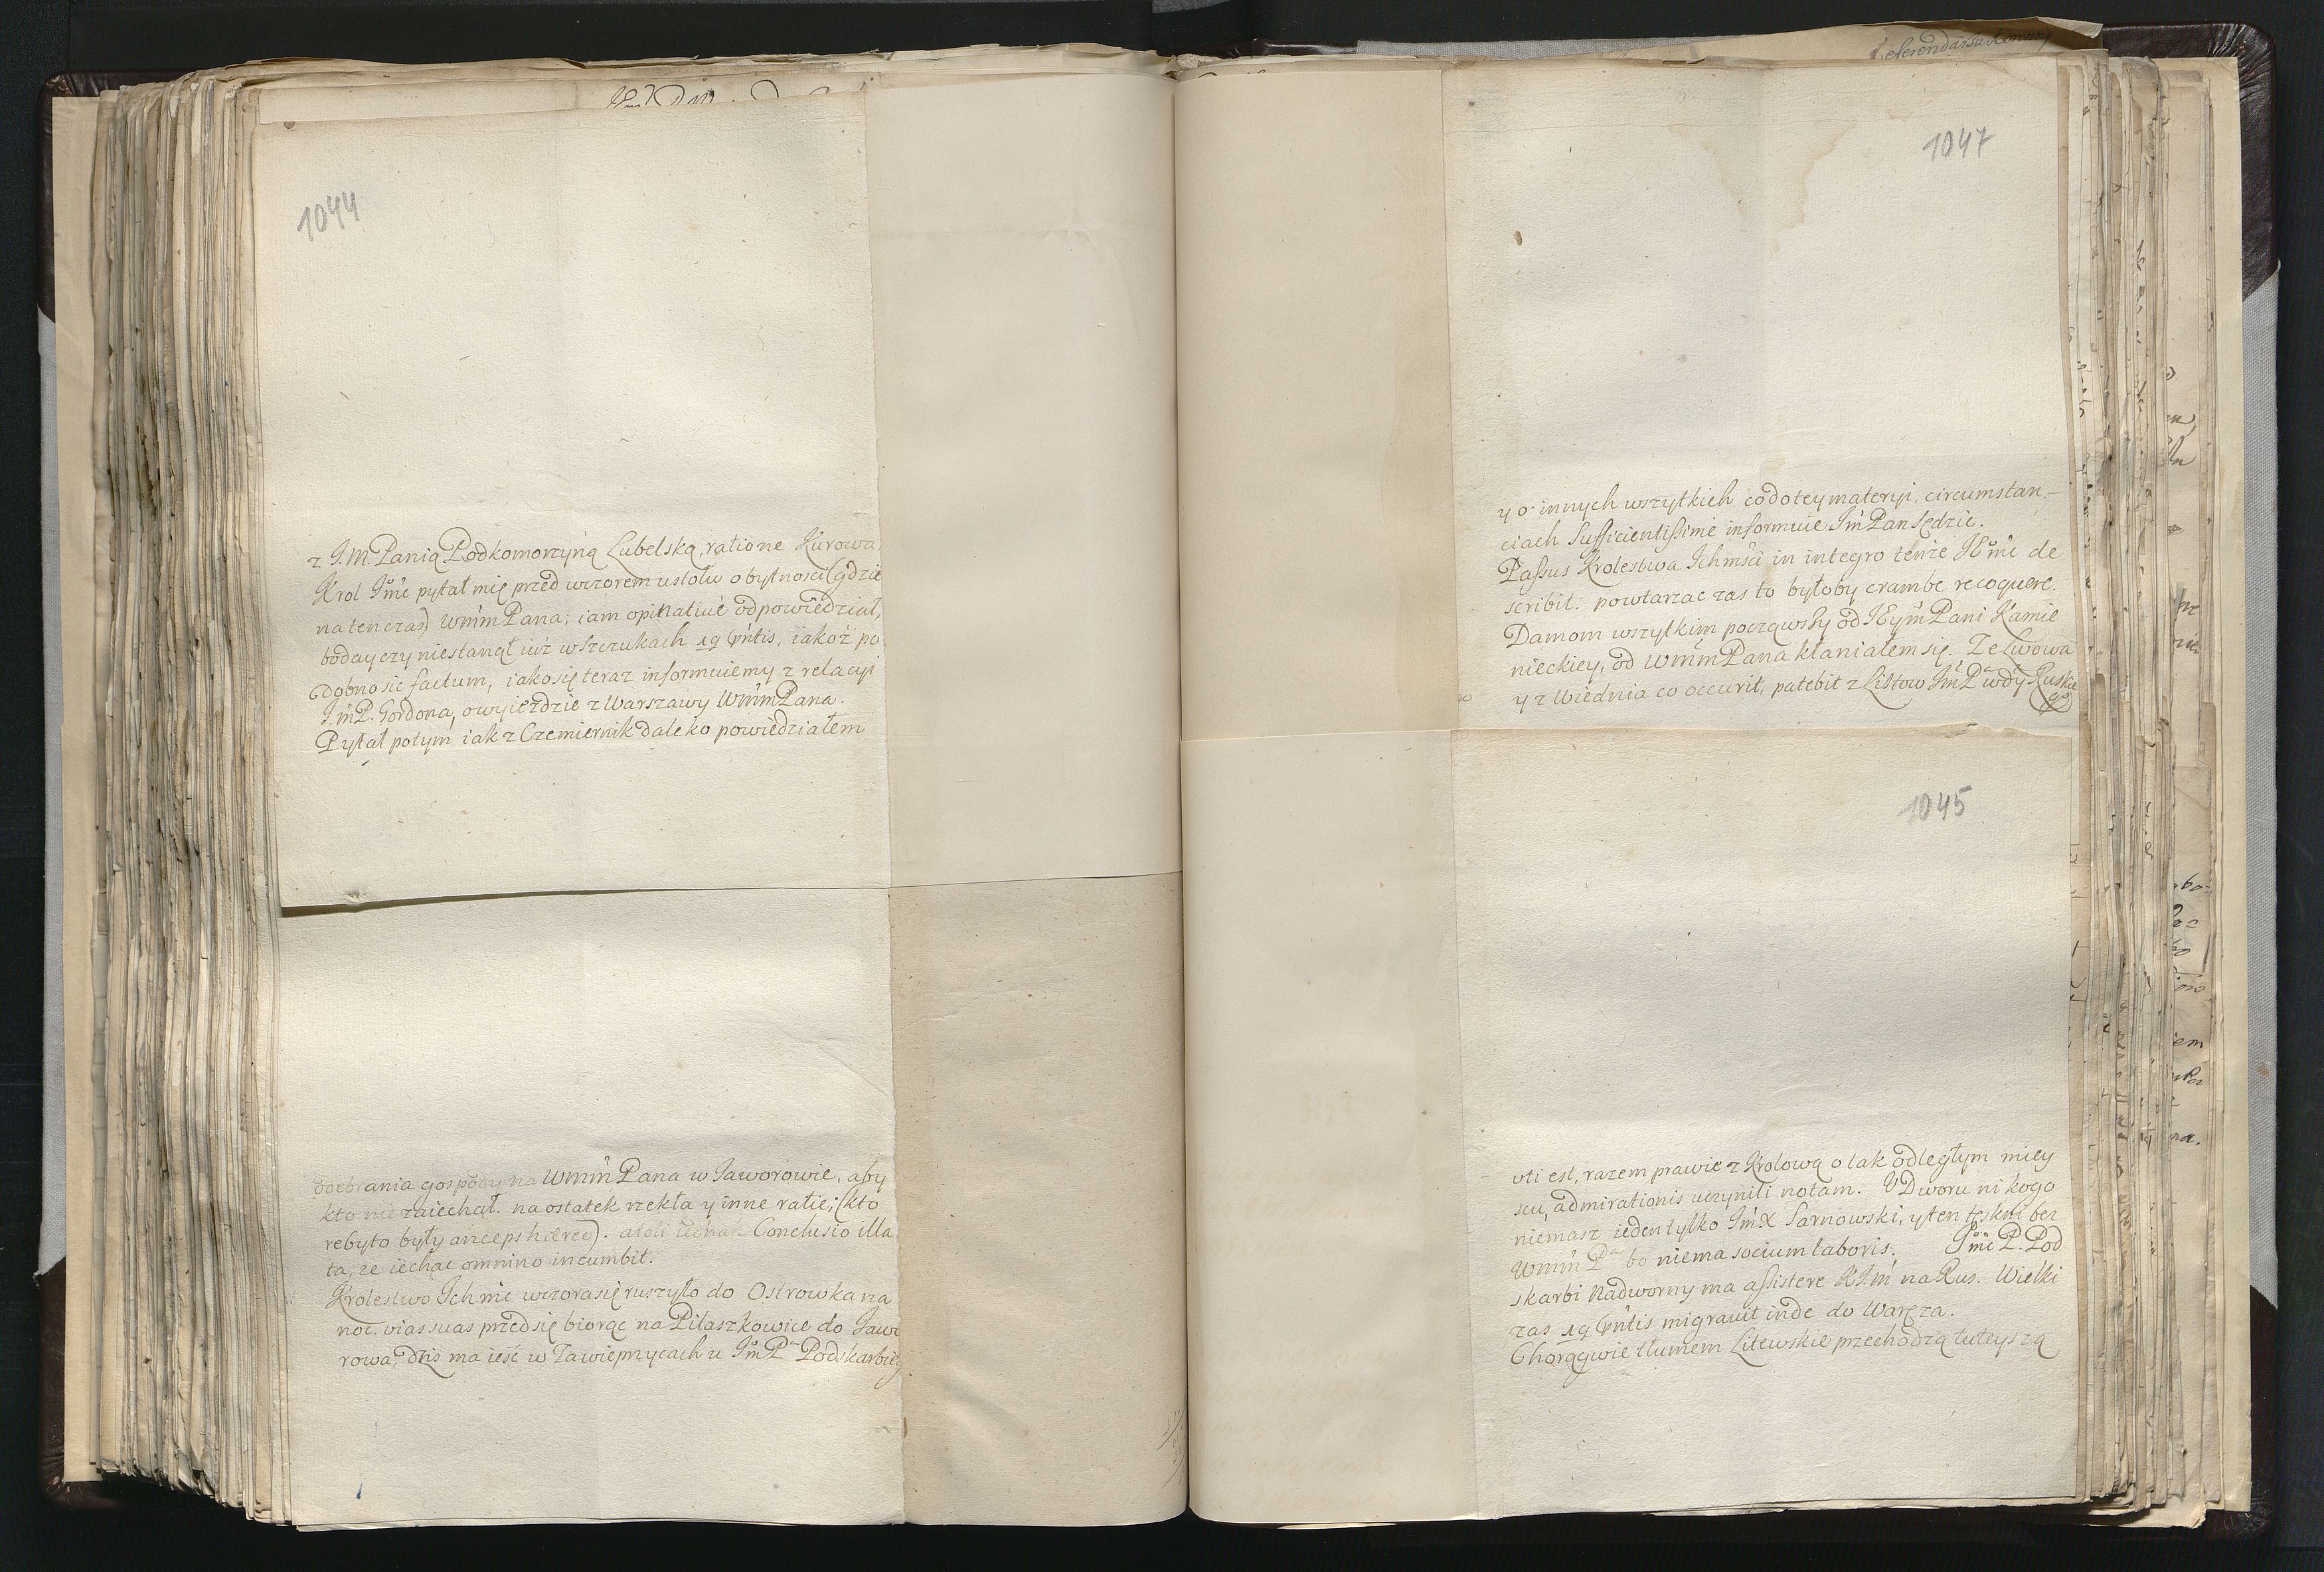 1044
z J.M. Panią Podkomorzyną Lubelską, ratione Kurowa
Krol Jmć pytał mię przed wczorem u stołu o bytnosci (gdzie
na tenczas) WmmPana; iam opinatiuè odpowiedział,
boday czy niestanął iuż w Szczukach 19 pntis, iakoż po
dobno sic factum, iako się teraz informuiemy z relacyi
J.mP. Gordona, o wyieździe z Warszawy WmmPana.
Pytał potym iak z Czemiernik daleko powiedziałem
odebrania gospody na WmmPana w Jaworowie, aby
kto nie zaiechał. na ostatek rzekła y inne ratie; (kto
rebyto były anceps hæreo). atoli iednak Conclusio illa
ta, ze iechac omnino incumbit.
Krolestwo Ichmć wczora się ruszyło do Ostrowka na
noc, vias suas przedsię biorąc na Pilaszkowice do Jawo
rowa, dzis ma ieść w Zawieprzycach u JmPa Podskarbieg
1047
y o innych wszytkich co do tey materyi, circumstan-
ciach sufficientissimè informuie Jm Pan Sędzic.
Passus Krolestwa Ichmśći in integro tenże Jmć de
scribit. powtarzac zas to byłoby crambe recoquere.
Damom wszytkim począwszy od JEym Pani Kamie
nieckiey, od WmmPana kłaniałem się. Ze Lwowa
y z Wiednia co occurit, patebit z Listow JmPa wdy Ruskie
go
1045
vti est, razem prawie z Krolową o tak odległym miey
scu, admirationis uczynili notam. V Dworu nikogo
niemasz ieden tylko JmX Sarnowski, y ten teskni bez
WmmPa bo niema socium laboris. Jmć P. Pod
skarbi Nadworny ma assistere KJm na Rus. Wielki
zas 19 pntis migrauit inde do Waręza.
Chorągwie tłumem Litewskie przechodzą tuteyszą